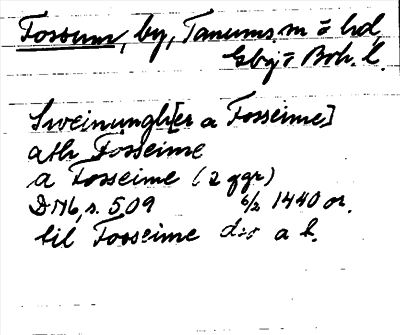 Fossum, by, Tanums sn o hd,
Gbg o Boh. l.
Sveinungh[er a Fosseime]
ath Fosseime
a Fosseime (2 ggr)
DN 16, s. 509 6/2 1440 or.
til Fosseime d:o a b.